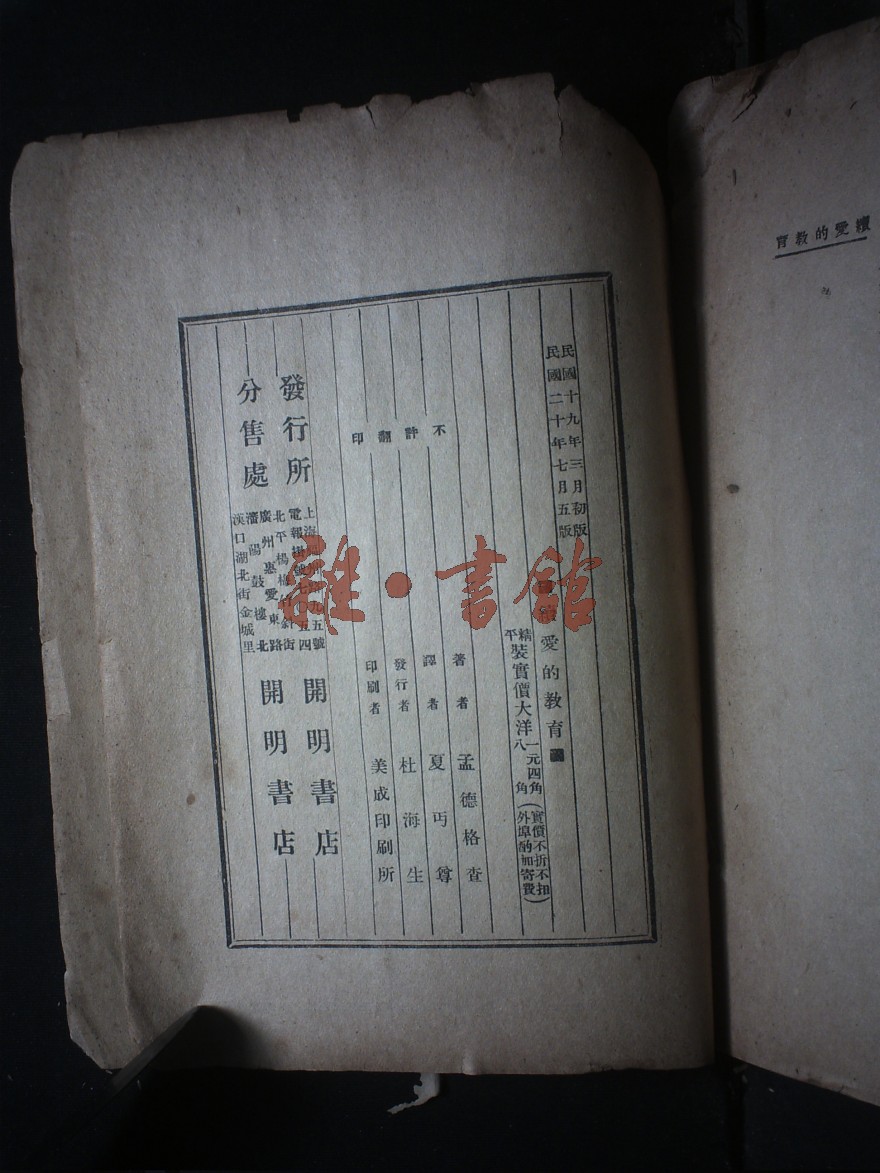 續愛的教育
民國十九年三月初版
民國二十年七月五版
愛的教育
精裝實價大洋一元四角
平裝實價大洋八角
(實價不折不扣
外埠酌加寄費)
著者 孟德格查
譯者 夏丏尊
發行者 杜海生
印刷者 美成印刷所
不許翻印
發行所
上海
五號
電報掛號七〇五四
開明書店
分售處
北平楊梅竹斜街
廣州惠愛東路
瀋陽鼓樓北
漢口湖北街金城里
開明書店
雜·書館